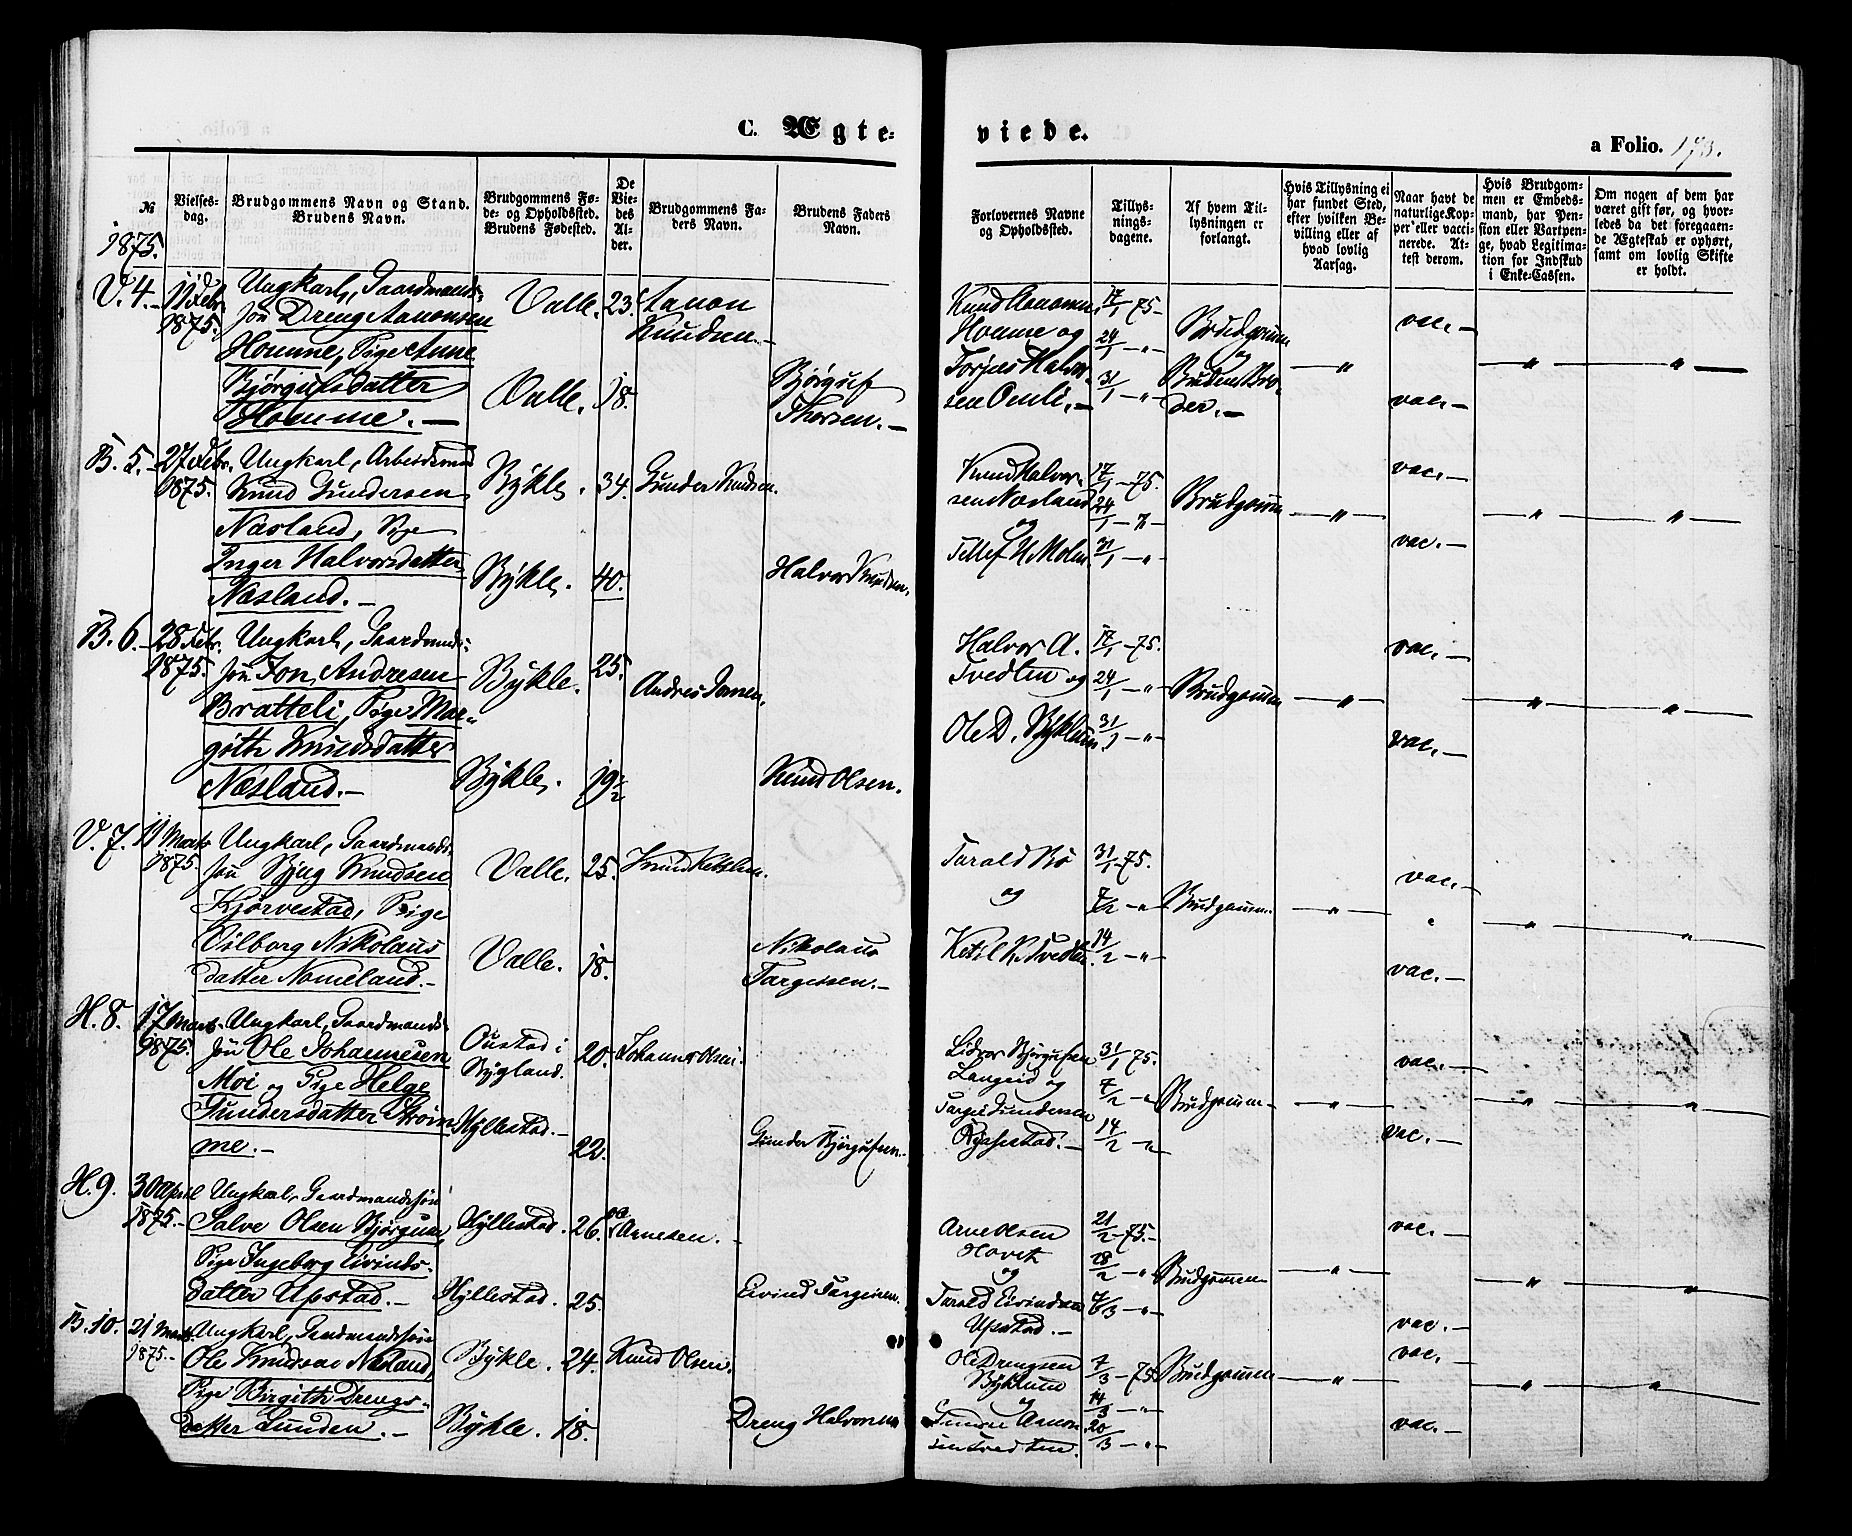 C. Ægte-
viede.
a Folio. 173.
№
Vielses-
dag.
Brudgommens Navn og Stand.
Brudens Navn.
Brudgommens Fø-
de- og Opholdssted.
Brudens Fødested.
De
Vie-
des
Al-
der.
Brudgommens Fa-
ders Navn.
Brudens Faders
Navn.
Forlovernes Navne
og Opholdssted.
Tillys-
nings-
dagene.
Af hvem Til-
lysningen er
forlangt.
Hvis Tillysning ei
har fundet Sted,
efter hvilken Be-
villing eller af
hvad lovlig
Aarsag.
Naar havt de
naturlige Kop-
per eller vacci-
nerede. At-
test derom.
Hvis Brudgom-
men er Embeds-
mand, har Pen-
sion eller Vartpen-
ge, hvad Legitima-
tion for Indskud
i Enke-Cassen.
Om nogen af dem har
været gift før, og hvor-
ledes da det foregaaen-
de Ægteskab er ophørt,
samt om lovlig Skifte
er holdt.
1875.
V. 4. 11 Febr. 1875.
Ungkarl, Gaardmands-
søn Dreng Aanonsen
Homme, Pige Anne
Bjørgufsdatter
Homme.
Valle. 23. Aanon
Knudsen.
Valle. 18. Bjørguf
Thorsen.
Knud Aanonsen
Homme og
Torjus Halvor-
sen Omli.
17/1 - 75.
24/1 - "
31/1 - "
Brudgommen
og
Brudens Bro-
der.
" vac. " "
vac.
B. 5. 27 Febr. 1875.
Ungkarl, Arbeidsmand
Knud Gundersen
Næsland, Pige
Inger Halvorsdatter
Næsland.
Bykle. 34. Gunder Knudsen.
Bykle. 40. Halvor Knudsen.
Knud Halvor-
sen Næsland
og
Tellef N. Moln
17/1 - 75.
24/1 - "
31/1 - "
Brudgommen
" vac. " "
vac.
B. 6. 28 Febr. 1875.
Ungkarl, Gaardmands-
søn Jon Andresen
Bratteli, Pige Mar-
githe Knudsdatter
Næsland.
Bykle. 25. Andres Jonsen.
Bykle. 19½ Knud Olsen.
Halvor A.
Tvedten og
Ole D. Byklum.
17/1 - 75.
24/1 - "
31/1 - "
Brudgommen
" vac. " "
vac.
V. 7. 11 Marts 1875.
Ungkarl, Gaardmands-
søn Bjug Knudsen
Kjørvestad, Pige
Vilborg Nikolaus
datter Nomeland.
Valle. 25. Knud Ketilsen.
Valle. 18. Nikolaus
Targessen.
Tarald Bø
og
Ketil K. Tvedten.
31/1 - 75.
7/2 - "
14/2 - "
Brudgommen
" vac. " "
vac.
H. 8. 17 Marts 1875.
Ungkarl, Gaardmands-
søn Ole Johannesen
Moi og Pige Helge
Gundersdatter Strøm-
me.
Oustad i
Bygland. 20. Johannes Olsen.
Hyllestad. 22. Gunder Bjørgufsen.
Lidvor Bjørgufsen
Langeid og
Targe Gundersen
Rysstad.
31/1 - 75.
7/2 - "
14/2 - "
Brudgommen
" vac. " "
vac.
H. 9. 30 April 1875.
Ungkarl, Gaardmandssøn
Salve Olsen Bjørgum,
Pige Ingeborg Eivinds-
datter Upstad.
Hyllestad. 26. Ole Arnesen.
Hyllestad. 25. Eivind Targeisen.
Arne Olsen
Hovet
og
Tarald Eivindsen
Upstad.
21/2 - 75.
28/2 - "
7/3 - "
Brudgommen
" vac. " "
vac.
B. 10. 21 Marts 1875.
Ungkarl, Gaardmandssøn
Ole Knudsen Næsland,
Pige Birgith Drengs-
datter Lunden.
Bykle. 24. Knud Olsen.
Bykle. 18. Dreng Halvorsen
Ole Drengsen
Byklum
og
Gunder Aanon-
sen Tvedten.
7/3 - 75.
14/3 - "
20/3 - "
Brudgommen
" vac. " "
vac.